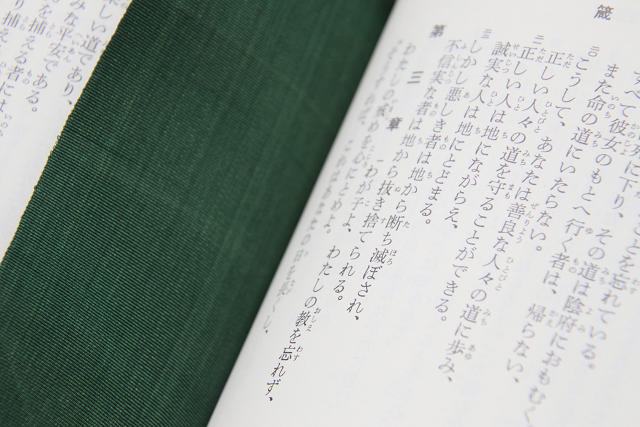 箴
ことを忘れている。
に下り、その道は陰府におもむく
べて彼女のもとへ行く者は、帰らない、
また命の道にいたらない。
二〇 こうして、あなたは善良な人々の道に歩み、
正しい人々の道を守ることができる。
二一 正しい人は地にながらえ、
誠実な人は地にとどまる。
二二 しかし悪しき者は地から断ち滅ぼされ、
不信実な者は地から抜き捨てられる。
第三章
一 わが子よ、わたしの教を忘れず、
わたしの戒めを心にとめよ。
しい道であり、
みな平安である。
を捕える者には